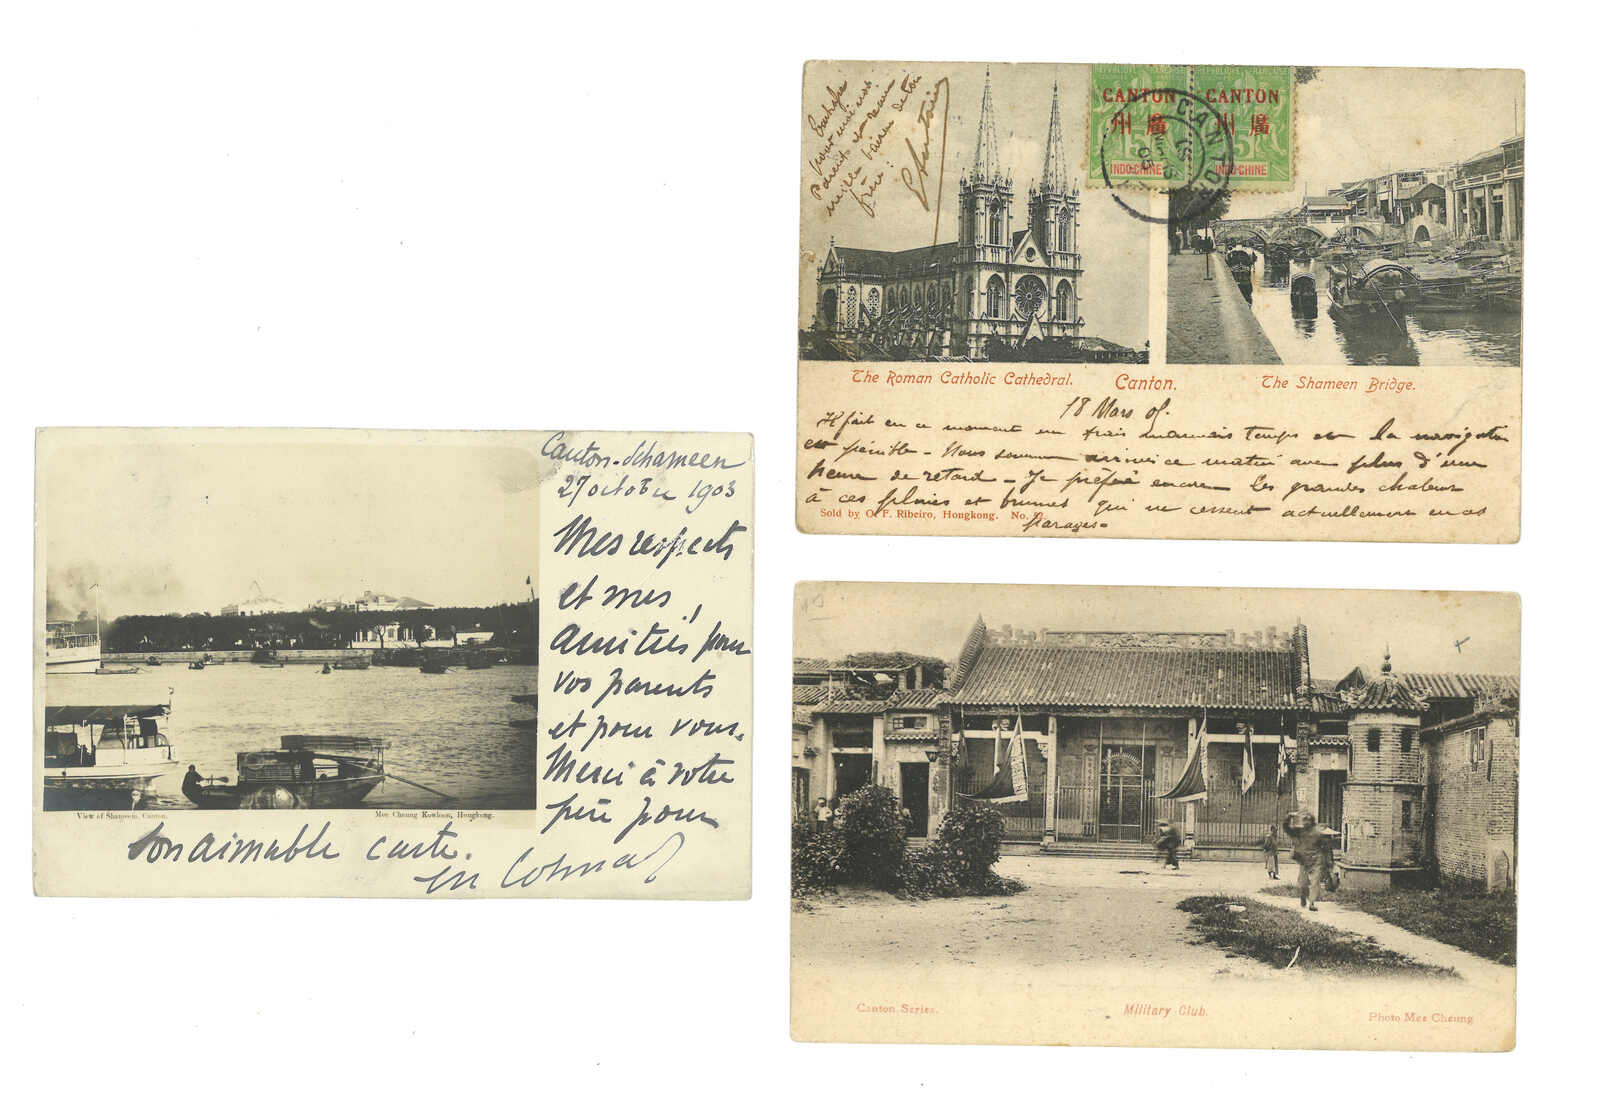 Canton-Schameen
27 octobre 1903
Mes respects
et mes
amitiés pour
vos parents
et pour vous.
Merci à votre
père pour
son aimable carte.
View of Shameen, Canton.
Mee Cheung Kowloon, Hongkong.
pour moi nos
Parents et
père
CANTON
州 廣
5
INDO-CHINE
CANTON
州 廣
5
INDO-CHINE
CANTON
The Roman Catholic Cathedral.
Canton.
The Shameen Bridge.
18 Mars 05.
Il fait en ce moment un frais mauvais temps et la navigation
est pénible - Nous sommes arrivés ce matin avec plus d'une
heure de retard - Je préfère encore les grandes chaleurs
à ces pluies et brumes qui ne cessent actuellement en ces
parages -
Sold by O. F. Ribeiro, Hongkong. No.
Canton Series.
Military Club.
Photo Mee Cheung